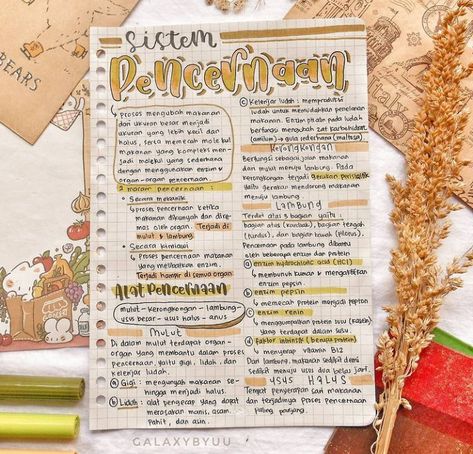 Sistem
Pencernaan
↳ proses mengubah makanan
dari ukuran besar menjadi
ukuran yang lebih kecil dan
halus, serta memecah molekul
makanan yang kompleks men-
jadi molekul yang sederhana
dengan menggunakan enzim &
organ-organ pencernaan
2 macam pencernaan :
• Secara mekanik
↳ proses pencernaan ketika
makanan dikunyah dan dire-
mas oleh organ. Terjadi di
mulut & lambung
• Secara kimiawi
↳ proses pencernaan makanan
yang melibatkan enzim.
Terjadi hampir di semua organ
Alat Pencernaan
mulut - kerongkongan - lambung -
usus besar - usus halus - anus
Mulut
Di dalam mulut terdapat organ-
organ yang membantu dalam proses
pencernaan yaitu gigi, lidah, dan
kelenjar ludah.
a) Gigi : mengunyah makanan se-
hingga menjadi halus.
b) Lidah : alat pengecap yang dapat
merasakan manis, asam,
pahit, dan asin.
c) Kelenjar ludah : memproduksi
ludah untuk memudahkan penelanan
makanan. Enzim ptialin pada ludah
berfungsi mengubah zat karbohidrat
(amilum) → gula sederhana (maltosa)
Kerongkongan
Berfungsi sebagai jalan makanan
dari mulut menuju lambung. Pada
kerongkongan terjadi gerakan peristaltik
yaitu gerakan mendorong makanan
menuju lambung
Lambung
Terdiri atas 3 bagian yaitu :
bagian atas (kardiak), bagian tengah
(fundus), dan bagian bawah (pilorus).
Pencernaan pada lambung dibantu
oleh beberapa enzim dan protein
a) enzim hydrochloric acid (HCl)
↳ membunuh kuman & mengaktifkan
enzim pepsin.
b) enzim pepsin
↳ memecah protein menjadi pepton
c) enzim renin
↳ menggumpalkan protein susu (kasein)
yang terdapat dalam susu.
d) Faktor intrinsik (berupa protein)
↳ menyerap vitamin B12
Dari lambung, makanan sedikit demi
sedikit menuju usus dua belas jari.
Usus Halus
Tempat penyerapan sari makanan
dan terjadinya proses pencernaan
paling panjang.
BEARS
GALAXYBYUU